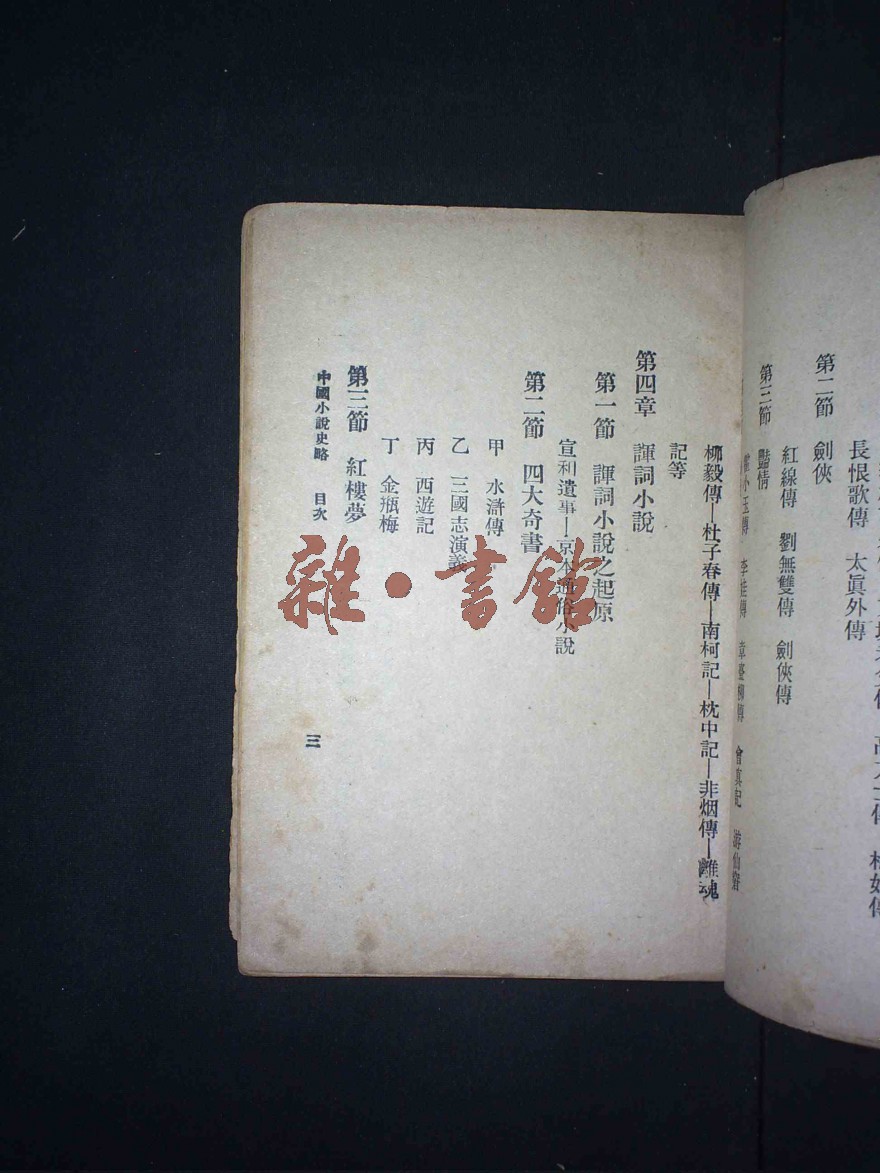 長恨歌傳　太眞外傳
第二節　劍俠
紅線傳　劉無雙傳　劍俠傳
第三節　豔情
小玉傳　李娃傳　章臺柳傳　會眞記　游仙窟
柳毅傳—杜子春傳—南柯記—枕中記—非烟傳—離魂
記等
第四章　諢詞小說
第一節　諢詞小說之起原
宣和遺事—京本通俗小說
第二節　四大奇書
甲　水滸傳
乙　三國志演義
丙　西遊記
丁　金瓶梅
第三節　紅樓夢
中國小說史略　目次
三
雜·書館